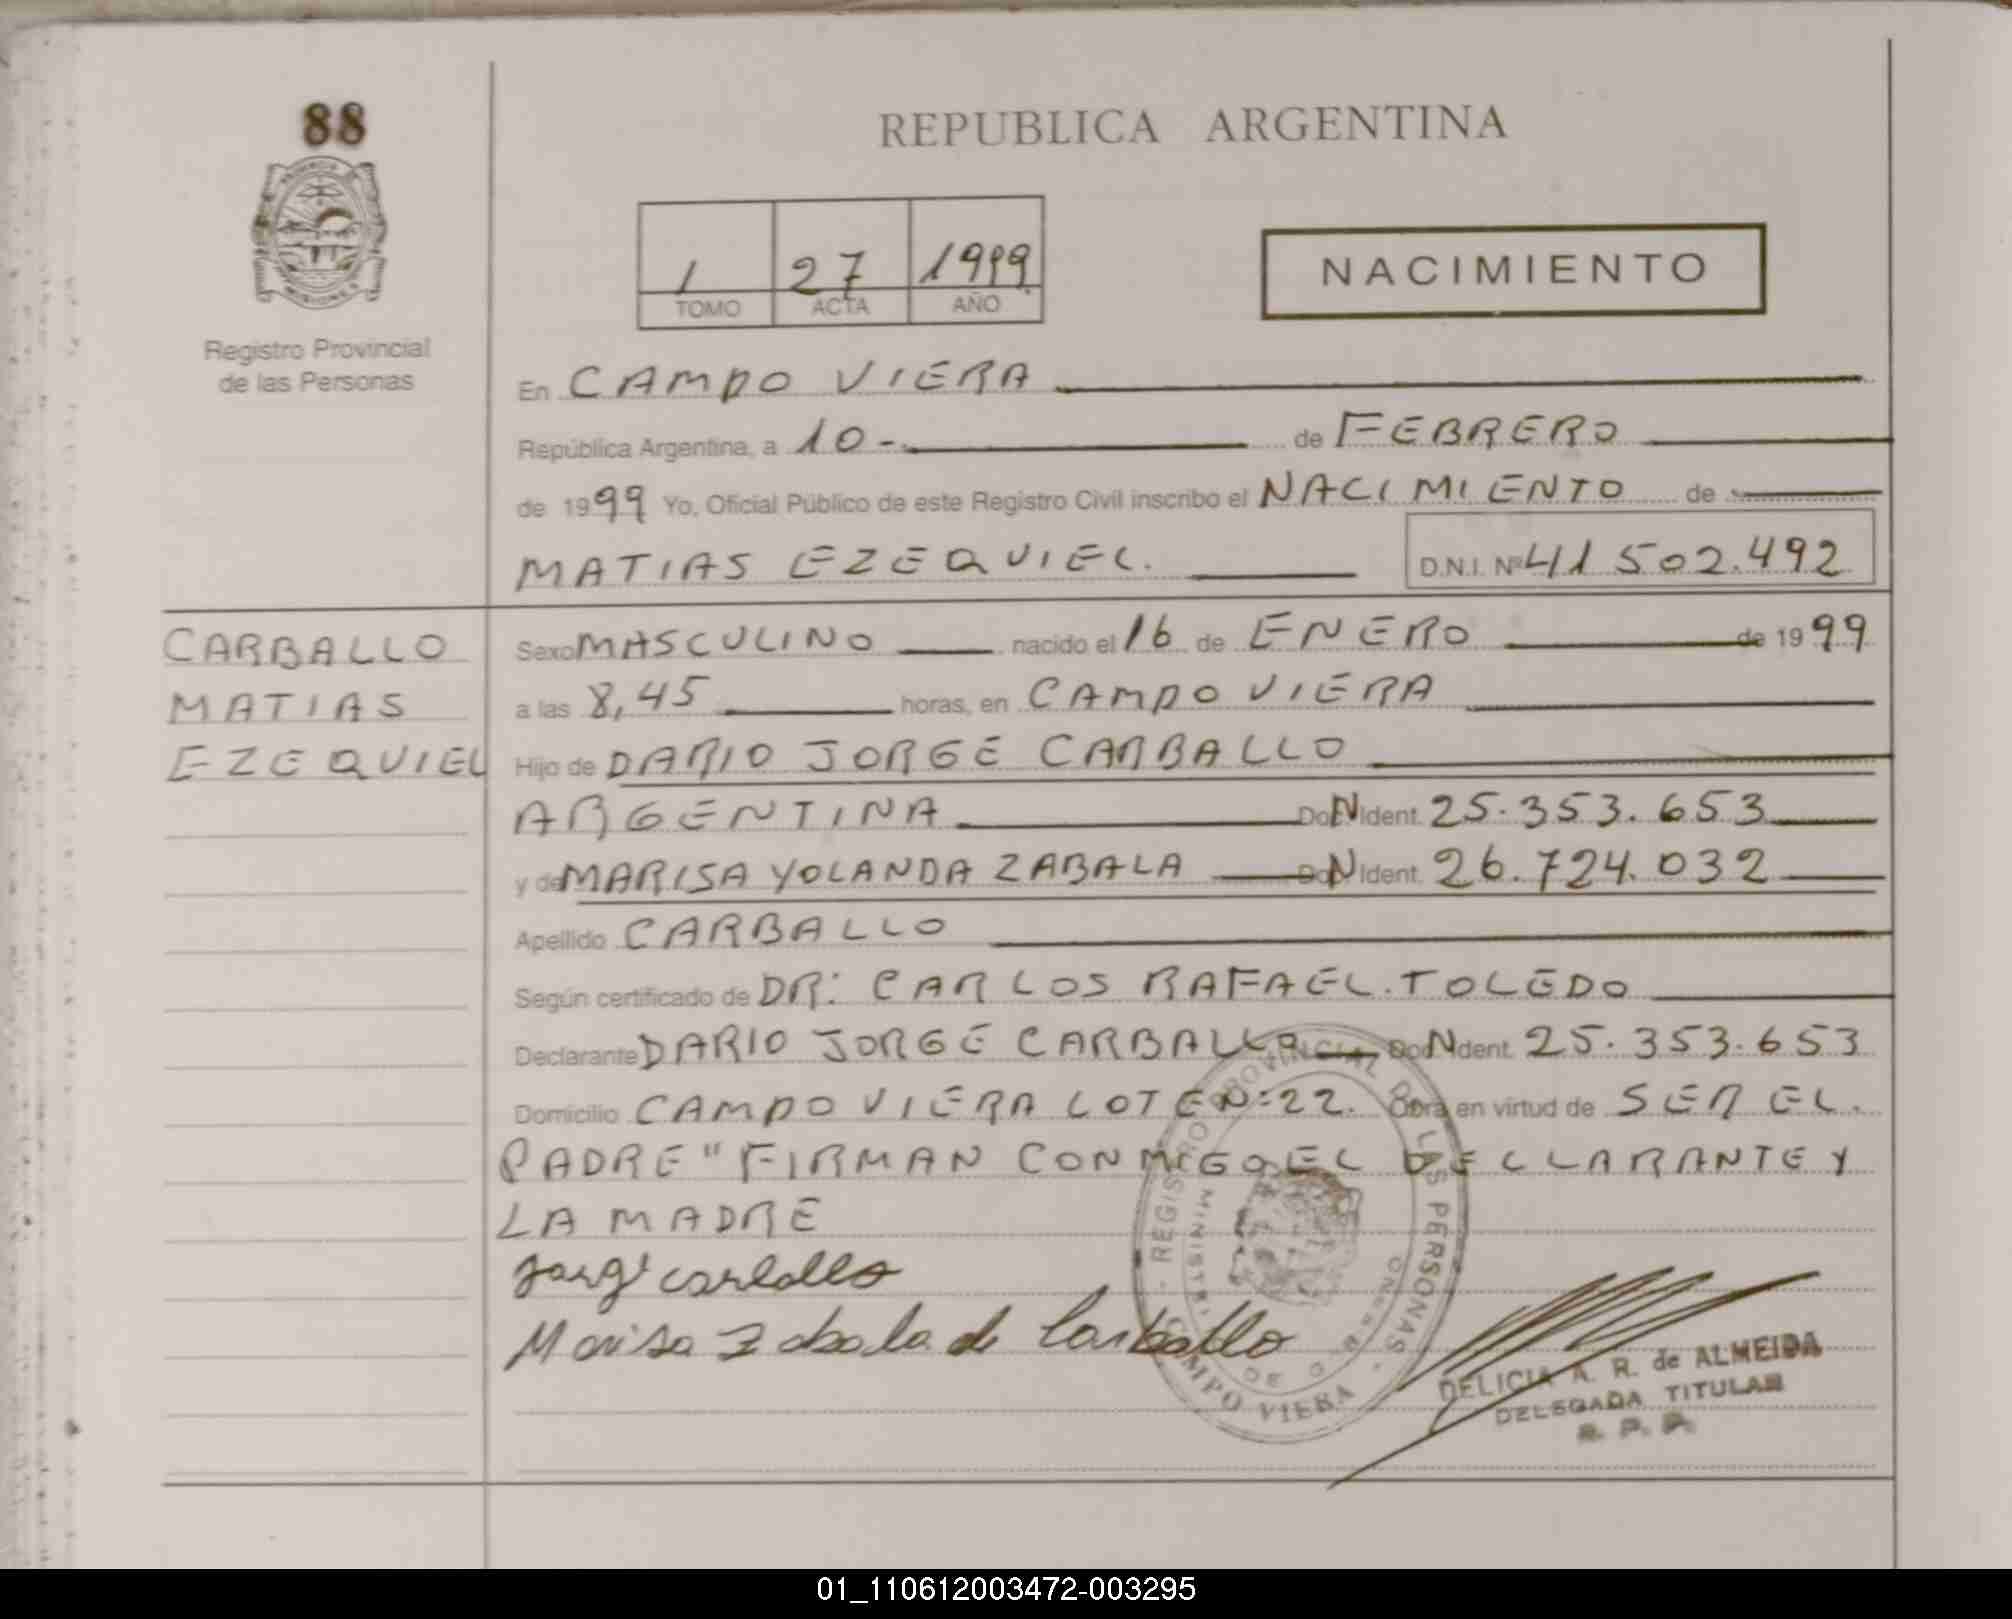 88
REPUBLICA ARGENTINA
1 27 1999
TOMO ACTA AÑO
NACIMIENTO
PROVINCIA
MISIONES
Registro Provincial
de las Personas
En CAMPO VIERA
República Argentina, a 10- de FEBRERO
de 1999 Yo, Oficial Público de este Registro Civil inscribo el NACIMIENTO de
MATIAS EZEQUIEL. D.N.I. Nº 41 502.492
CARBALLO
MATIAS
EZEQUIEL
Sexo MASCULINO nacido el 16 de ENERO de 1999
a las 8,45 horas, en CAMPO VIERA
Hijo de DARIO JORGE CARBALLO
ARGENTINA DNIdent. 25.353.653
y de MARISA YOLANDA ZABALA DNIdent. 26.724.032
Apellido CARBALLO
Según certificado de DR: CARLOS RAFAEL.TOLEDO
Declarante DARIO JORGE CARBALLO DoNdent. 25.353.653
Domicilio CAMPO VIERA LOTE Nº 22. Obra en virtud de SER EL.
PADRE "FIRMAN CONMIGO EL DECLLARANTE Y
LA MADRE
Jorge Carballo
Marisa Zabala de Carballo
REGISTRO PROVINCIAL DE LAS PERSONAS
CAMPO VIERA
DELICIA A. R. de ALMEIDA
DELEGADA TITULAR
R. P. P.
01_110612003472-003295